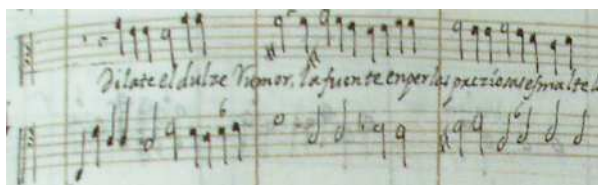 Dilate el dulze Rumor, la fuente en perlas preziosas esmalte
6